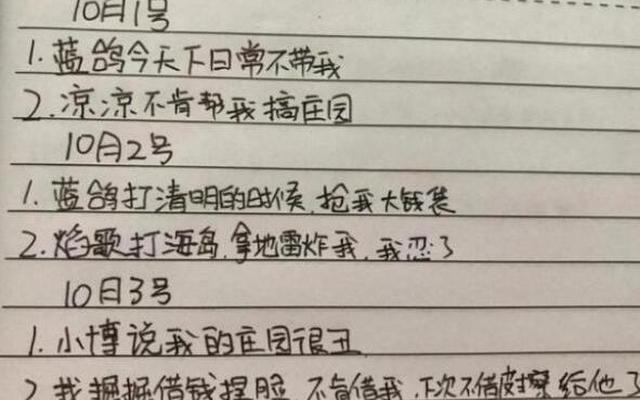 10月1号
1.蓝鸽今天下日常不带我
2.凉凉不肯帮我搞庄园
10月2号
1.蓝鸽打清明的时候,抢我大钱袋
2.焰歌打海岛,拿地雷炸我,我忍了
10月3号
1.小博说我的庄园很丑
2找掘掘借钱捏脸,不肯借我,下次不借皮擦给他了